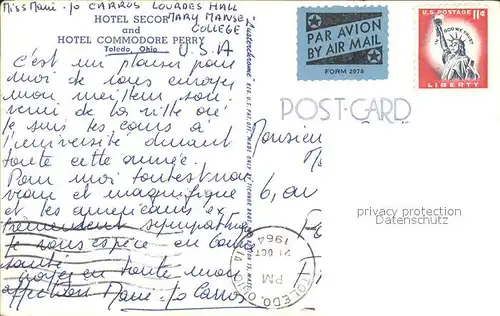 Miss Marie-Jo CARROS LOURDES HALL
MARY MANSE
COLLEGE
U.S.A
HOTEL SECOR
and
HOTEL COMMODORE PERRY
Toledo, Ohio
C'est un plaisir pour
moi de vous envoyer
mon meilleur sou-
venir de la ville où
je suis les cours à
l'université durant
toute cette année.
Pour moi tout est nou-
veau et magnifique
et les américains ex-
trêmement sympathiques
Je vous espère en bonne
santé
Croyez en toute mon
affection Marie-Jo Carros
"Lusterchrome"
REG. U.S. PAT. OFF.
PAR AVION
BY AIR MAIL
FORM 2978
U.S. POSTAGE 11¢
IN GOD WE TRUST
LIBERTY
POST CARD
Monsieur
6, av
privacy protection
Datenschutz
TOLEDO, OHIO
PM
21 OCT
1964